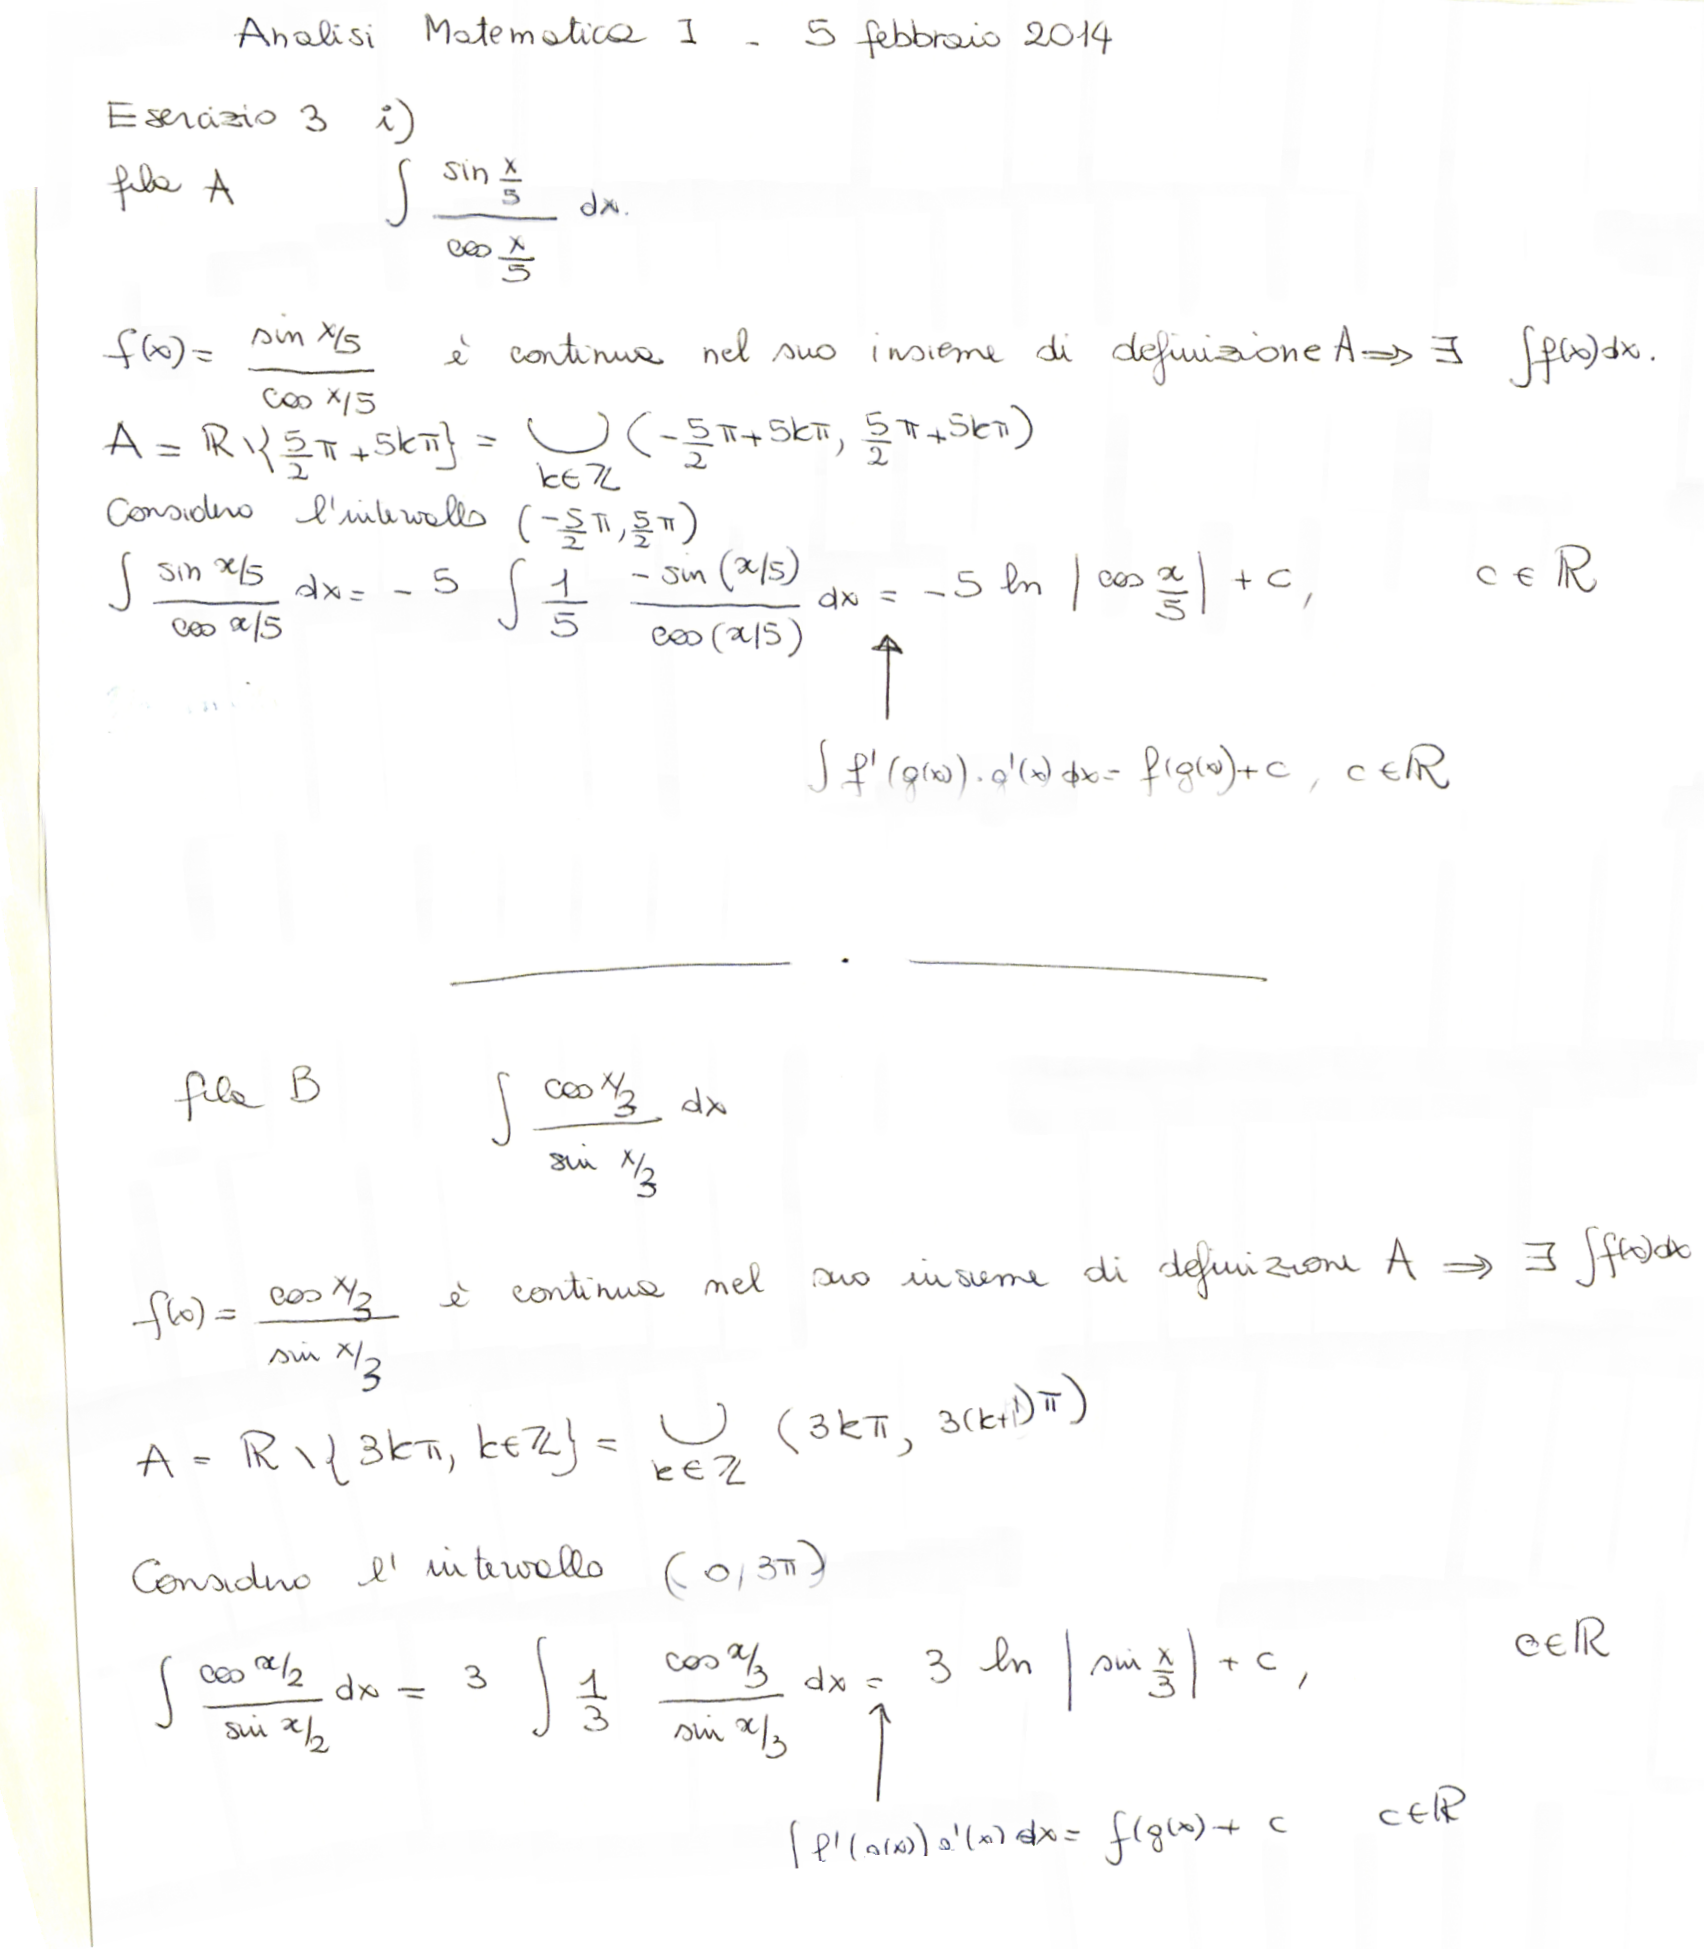 Analisi Matematica I - 5 febbraio 2014
Esercizio 3 i)
fila A ∫ (sin x/5)/(cos x/5) dx.
f(x) = (sin x/5)/(cos x/5) è continua nel suo insieme di definizione A ⇒ ∃ ∫f(x)dx.
A = ℝ \ {5/2 π + 5kπ} = ⋃ k∈ℤ (-5/2 π + 5kπ, 5/2 π + 5kπ)
Considero l'intervallo (-5/2 π, 5/2 π)
∫ (sin x/5)/(cos x/5) dx = - 5 ∫ 1/5 (- sin (x/5))/(cos (x/5)) dx = - 5 ln |cos x/5| + c, c ∈ ℝ
∫ f'(g(x)) . g'(x) dx = f(g(x)+c, c ∈ ℝ
fila B ∫ (cos x/3)/(sin x/3) dx
f(x) = (cos x/3)/(sin x/3) è continua nel suo insieme di definizione A ⇒ ∃ ∫f(x)dx
A = ℝ \ {3kπ, k∈ℤ} = ⋃ k∈ℤ (3kπ, 3(k+1)π)
Considero l'intervallo (0, 3π)
∫ (cos x/2)/(sin x/2) dx = 3 ∫ 1/3 (cos x/3)/(sin x/3) dx = 3 ln |sin x/3| + c, c∈ℝ
∫ f'(g(x)) g'(x) dx = f(g(x) + c c∈ℝ